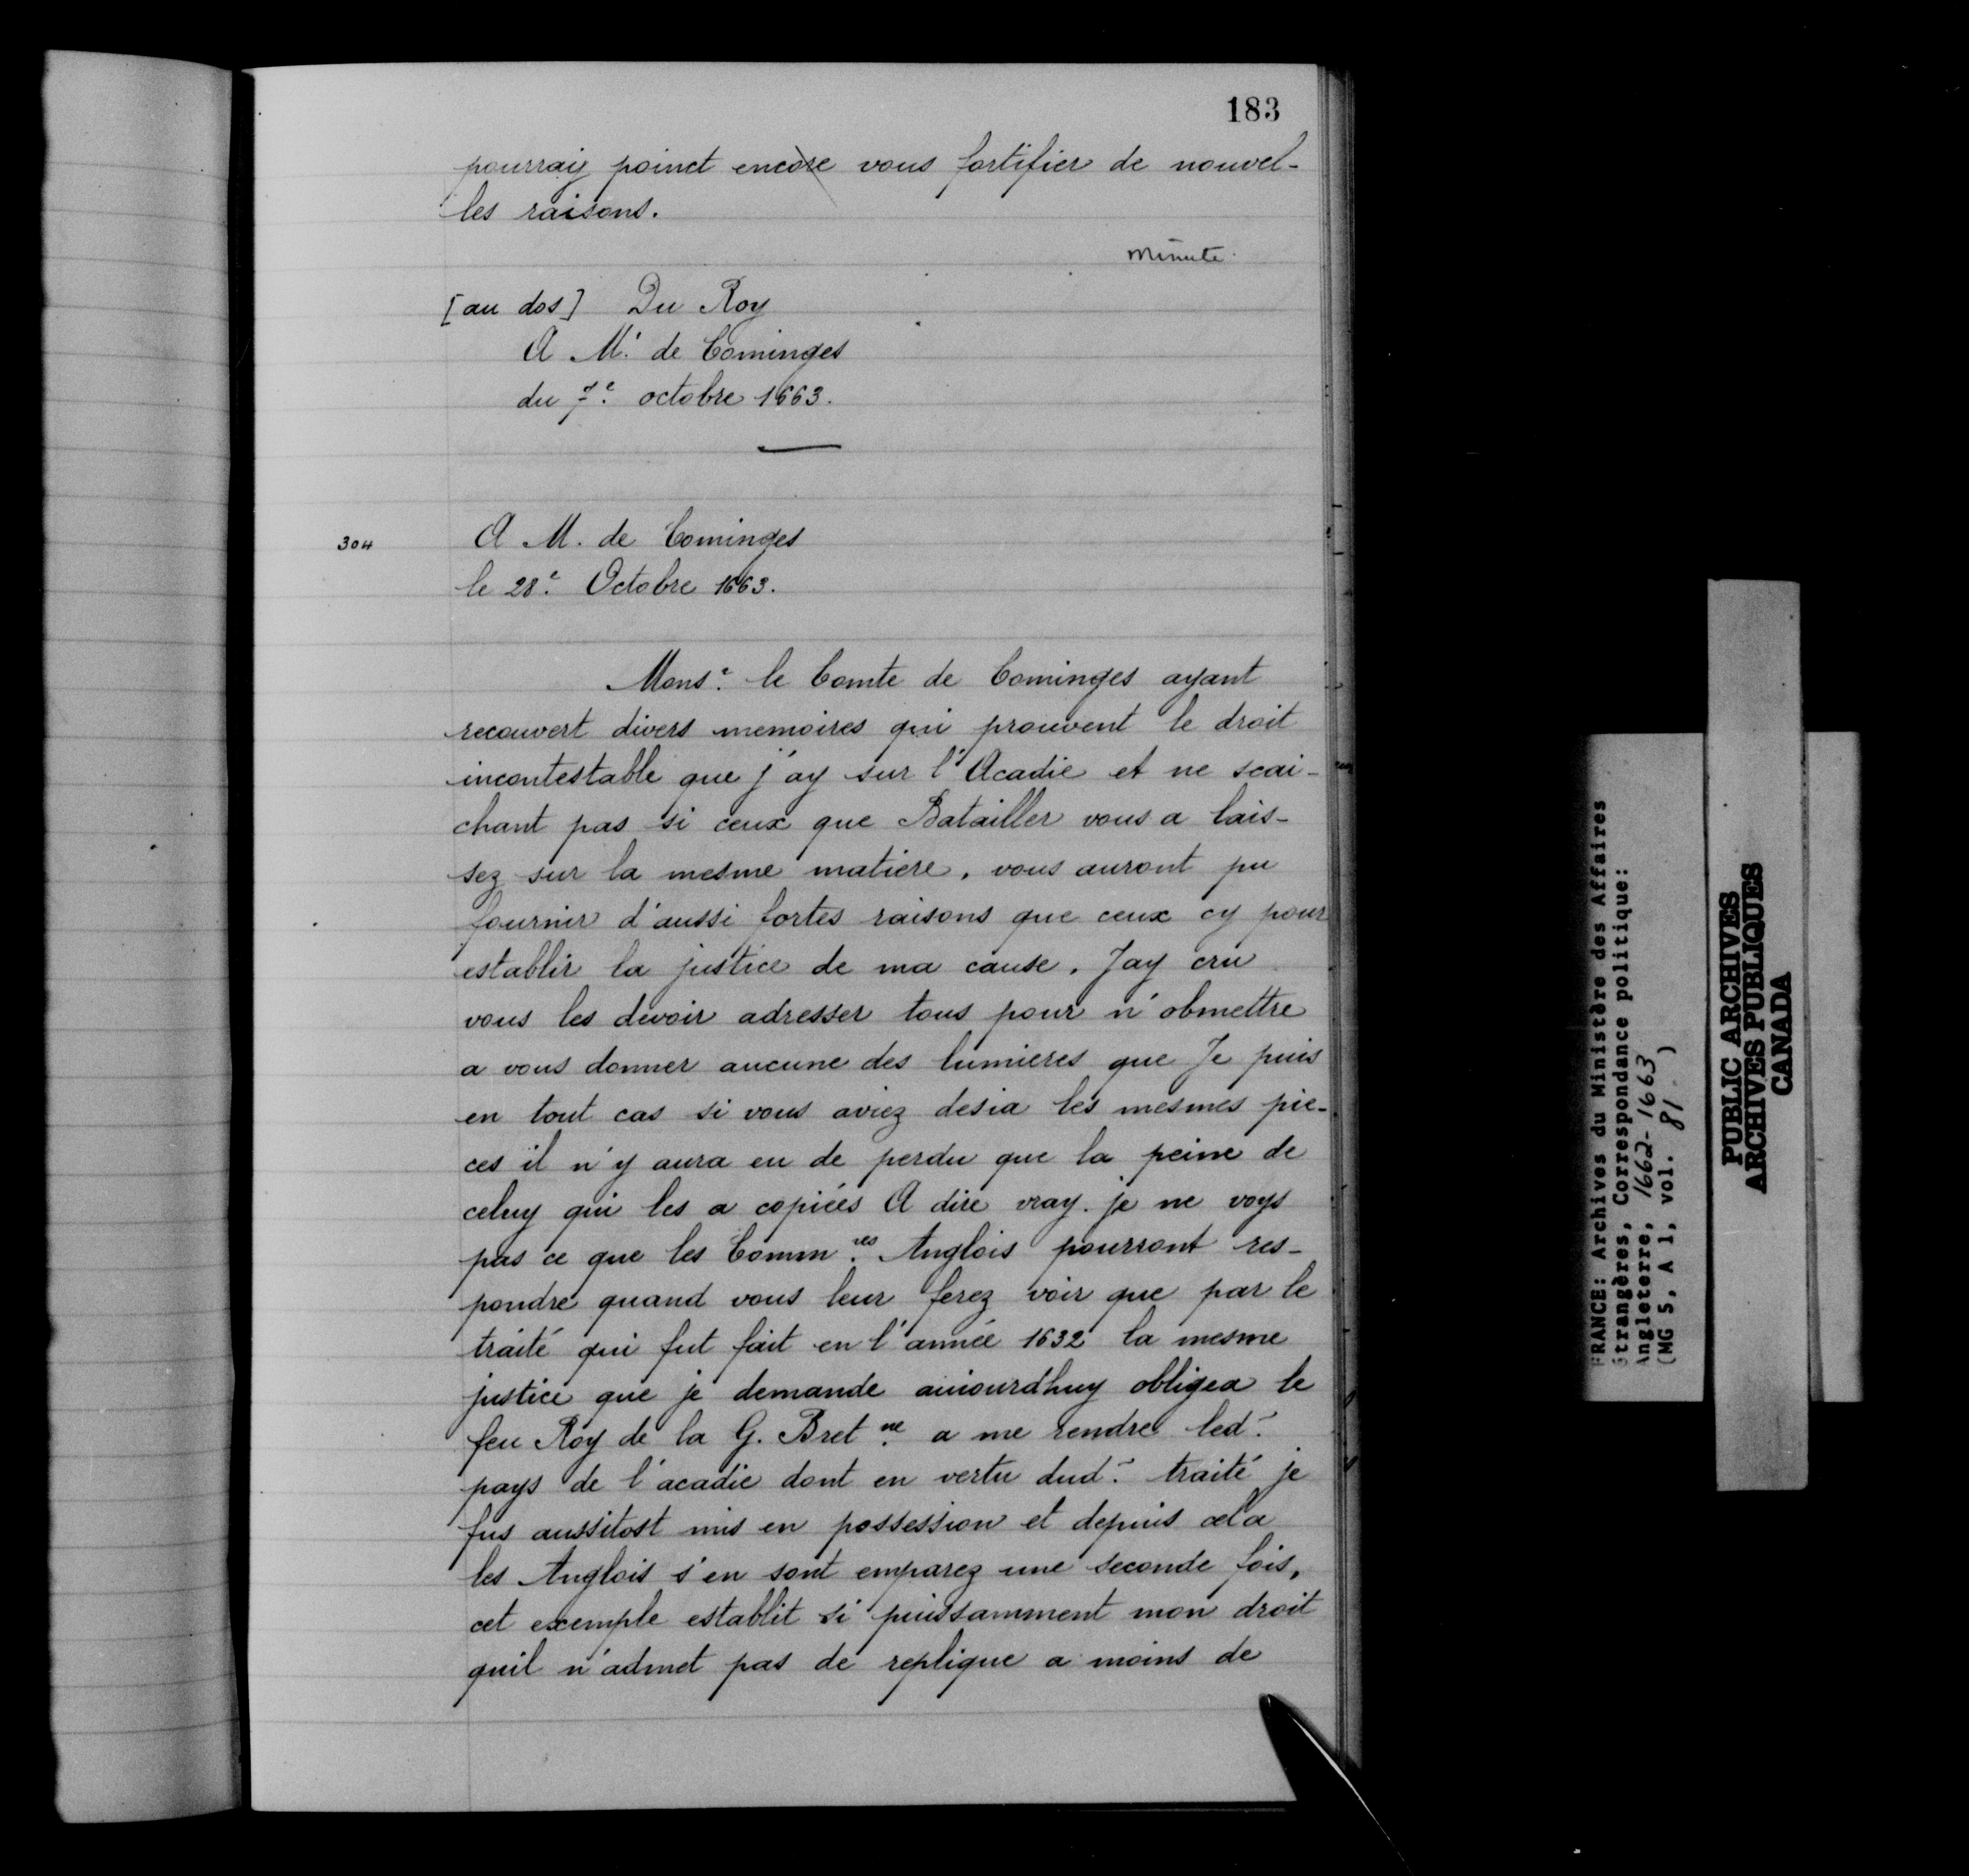 183
pourray poinct encore vous fortifier de nouvel-
les raisons.
minute.
[au dos] Du Roy
A Mr. de Cominges
du 7e. octobre 1663.
304
A M. de Cominges
le 28e. Octobre 1663.
Monsr. le Comte de Cominges ayant
recouvert divers memoires qui prouvent le droit
incontestable que j'ay sur l'Acadie et ne scai-
chant pas si ceux que Batailler vous a lais-
sez sur la mesme matiere, vous auront pu
fournir d'aussi fortes raisons que ceux cy pour
establir la justice de ma cause. Jay cru
vous les devoir adresser tous pour n'obmettre
a vous donner aucune des lumieres que Je puis
en tout cas si vous aviez desia les mesmes pie-
ces il n'y aura eu de perdu que la peine de
celuy qui les a copiées A dire vray. je ne voys
pas ce que les Commres. Anglois pourront res-
pondre quand vous leur ferez voir que par le
traité qui fut fait en l'année 1632 la mesme
justice que je demande auiourdhuy obligea le
feu Roy de la G. Bretne. a me rendre led.
pays de l'acadie dont en vertu dud. traité je
fus aussitost mis en possession et depuis cela
les Anglois s'en sont emparez une seconde fois,
cet exemple establit si puissamment mon droit
quil n'admet pas de replique a moins de
FRANCE: Archives du Ministère des Affaires
Étrangères, Correspondance politique:
Angleterre, 1662-1663
(MG 5, A 1, vol. 81 )
PUBLIC ARCHIVES
ARCHIVES PUBLIQUES
CANADA